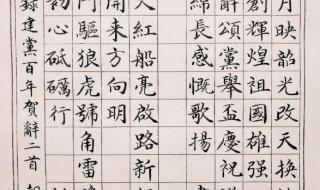 月映韶光改天換
創輝煌祖國雄强
辭頌黨舉盃慶祝
綿長感慨歌揚
人紅船亮啟路新
開来方向明
鬥驅狼虎號角雷
初心砥礪行
錄建黨百年賀辭二首